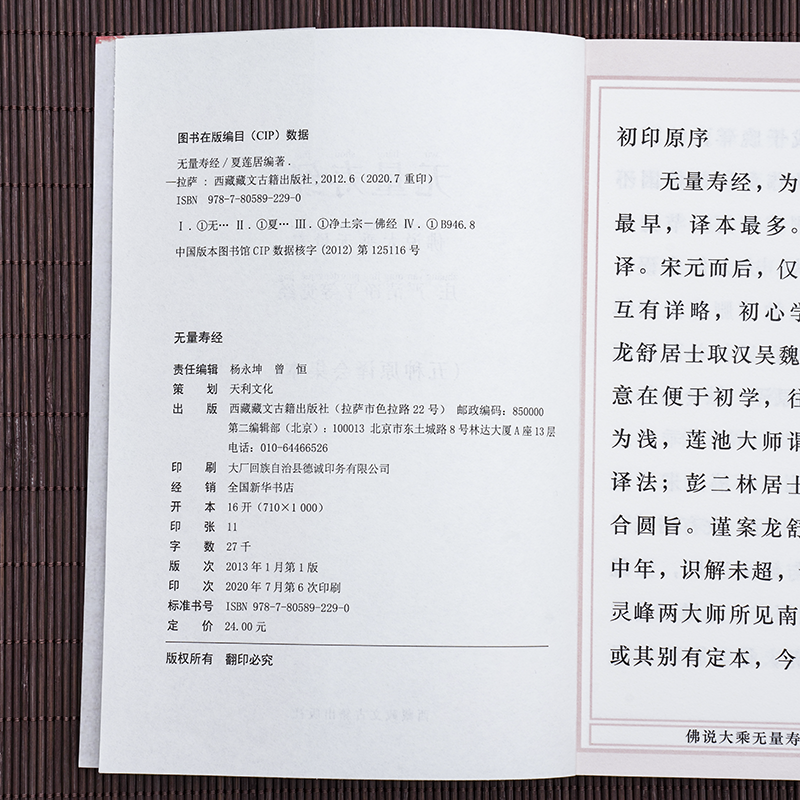 图书在版编目（CIP）数据
无量寿经／夏莲居编著.
—拉萨：西藏藏文古籍出版社，2012.6（2020.7重印）
ISBN 978-7-80589-229-0
Ⅰ.①无… Ⅱ.①夏… Ⅲ.①净土宗－佛经 Ⅳ.①B946.8
中国版本图书馆CIP数据核字(2012)第125116号
无量寿经
责任编辑 杨永坤 曾恒
策划 天利文化
出版 西藏藏文古籍出版社（拉萨市色拉路22号） 邮政编码：850000
第二编辑部（北京）：100013 北京市东土城路8号林达大厦A座13层
电话：010-64466526
印刷 大厂回族自治县德诚印务有限公司
经销 全国新华书店
开本 16开（710×1000）
印张 11
字数 27千
版次 2013年1月第1版
印次 2020年7月第6次印刷
标准书号 ISBN 978-7-80589-229-0
定价 24.00元
版权所有 翻印必究
初印原序
无量寿经，为
最早，译本最多。
译。宋元而后，仅
互有详略，初心学
龙舒居士取汉吴魏
意在便于初学，往
为浅，莲池大师谓
译法；彭二林居士
合圆旨。谨案龙舒
中年，识解未超，
灵峰两大师所见南
或其别有定本，今
佛说大乘无量寿